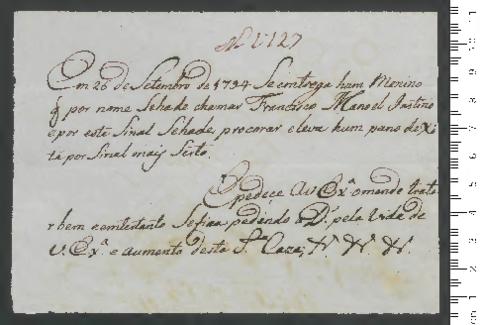 N. 1127
Em 26 de Setembro de 1794 Se emtrega hum Menino
q̃ por nome Sehade chamar Francisco Manoel Justino
e por este Sinal Sehade procurar e leva hum pano de xi
ta por Sinal mais Serto.
Epedece a V Ex.ª o mande trata
r bem emtertanto Sefica pedindo a D.s pela Vida de
V. Ex.ª e aumento desta S.ta Caza;